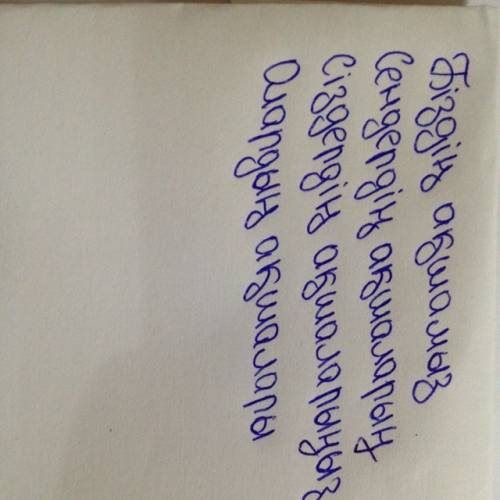 Біздің ақшамыз
Сендердің ақшаларың
Сіздердің ақшаларыңыз
Олардың ақшалары